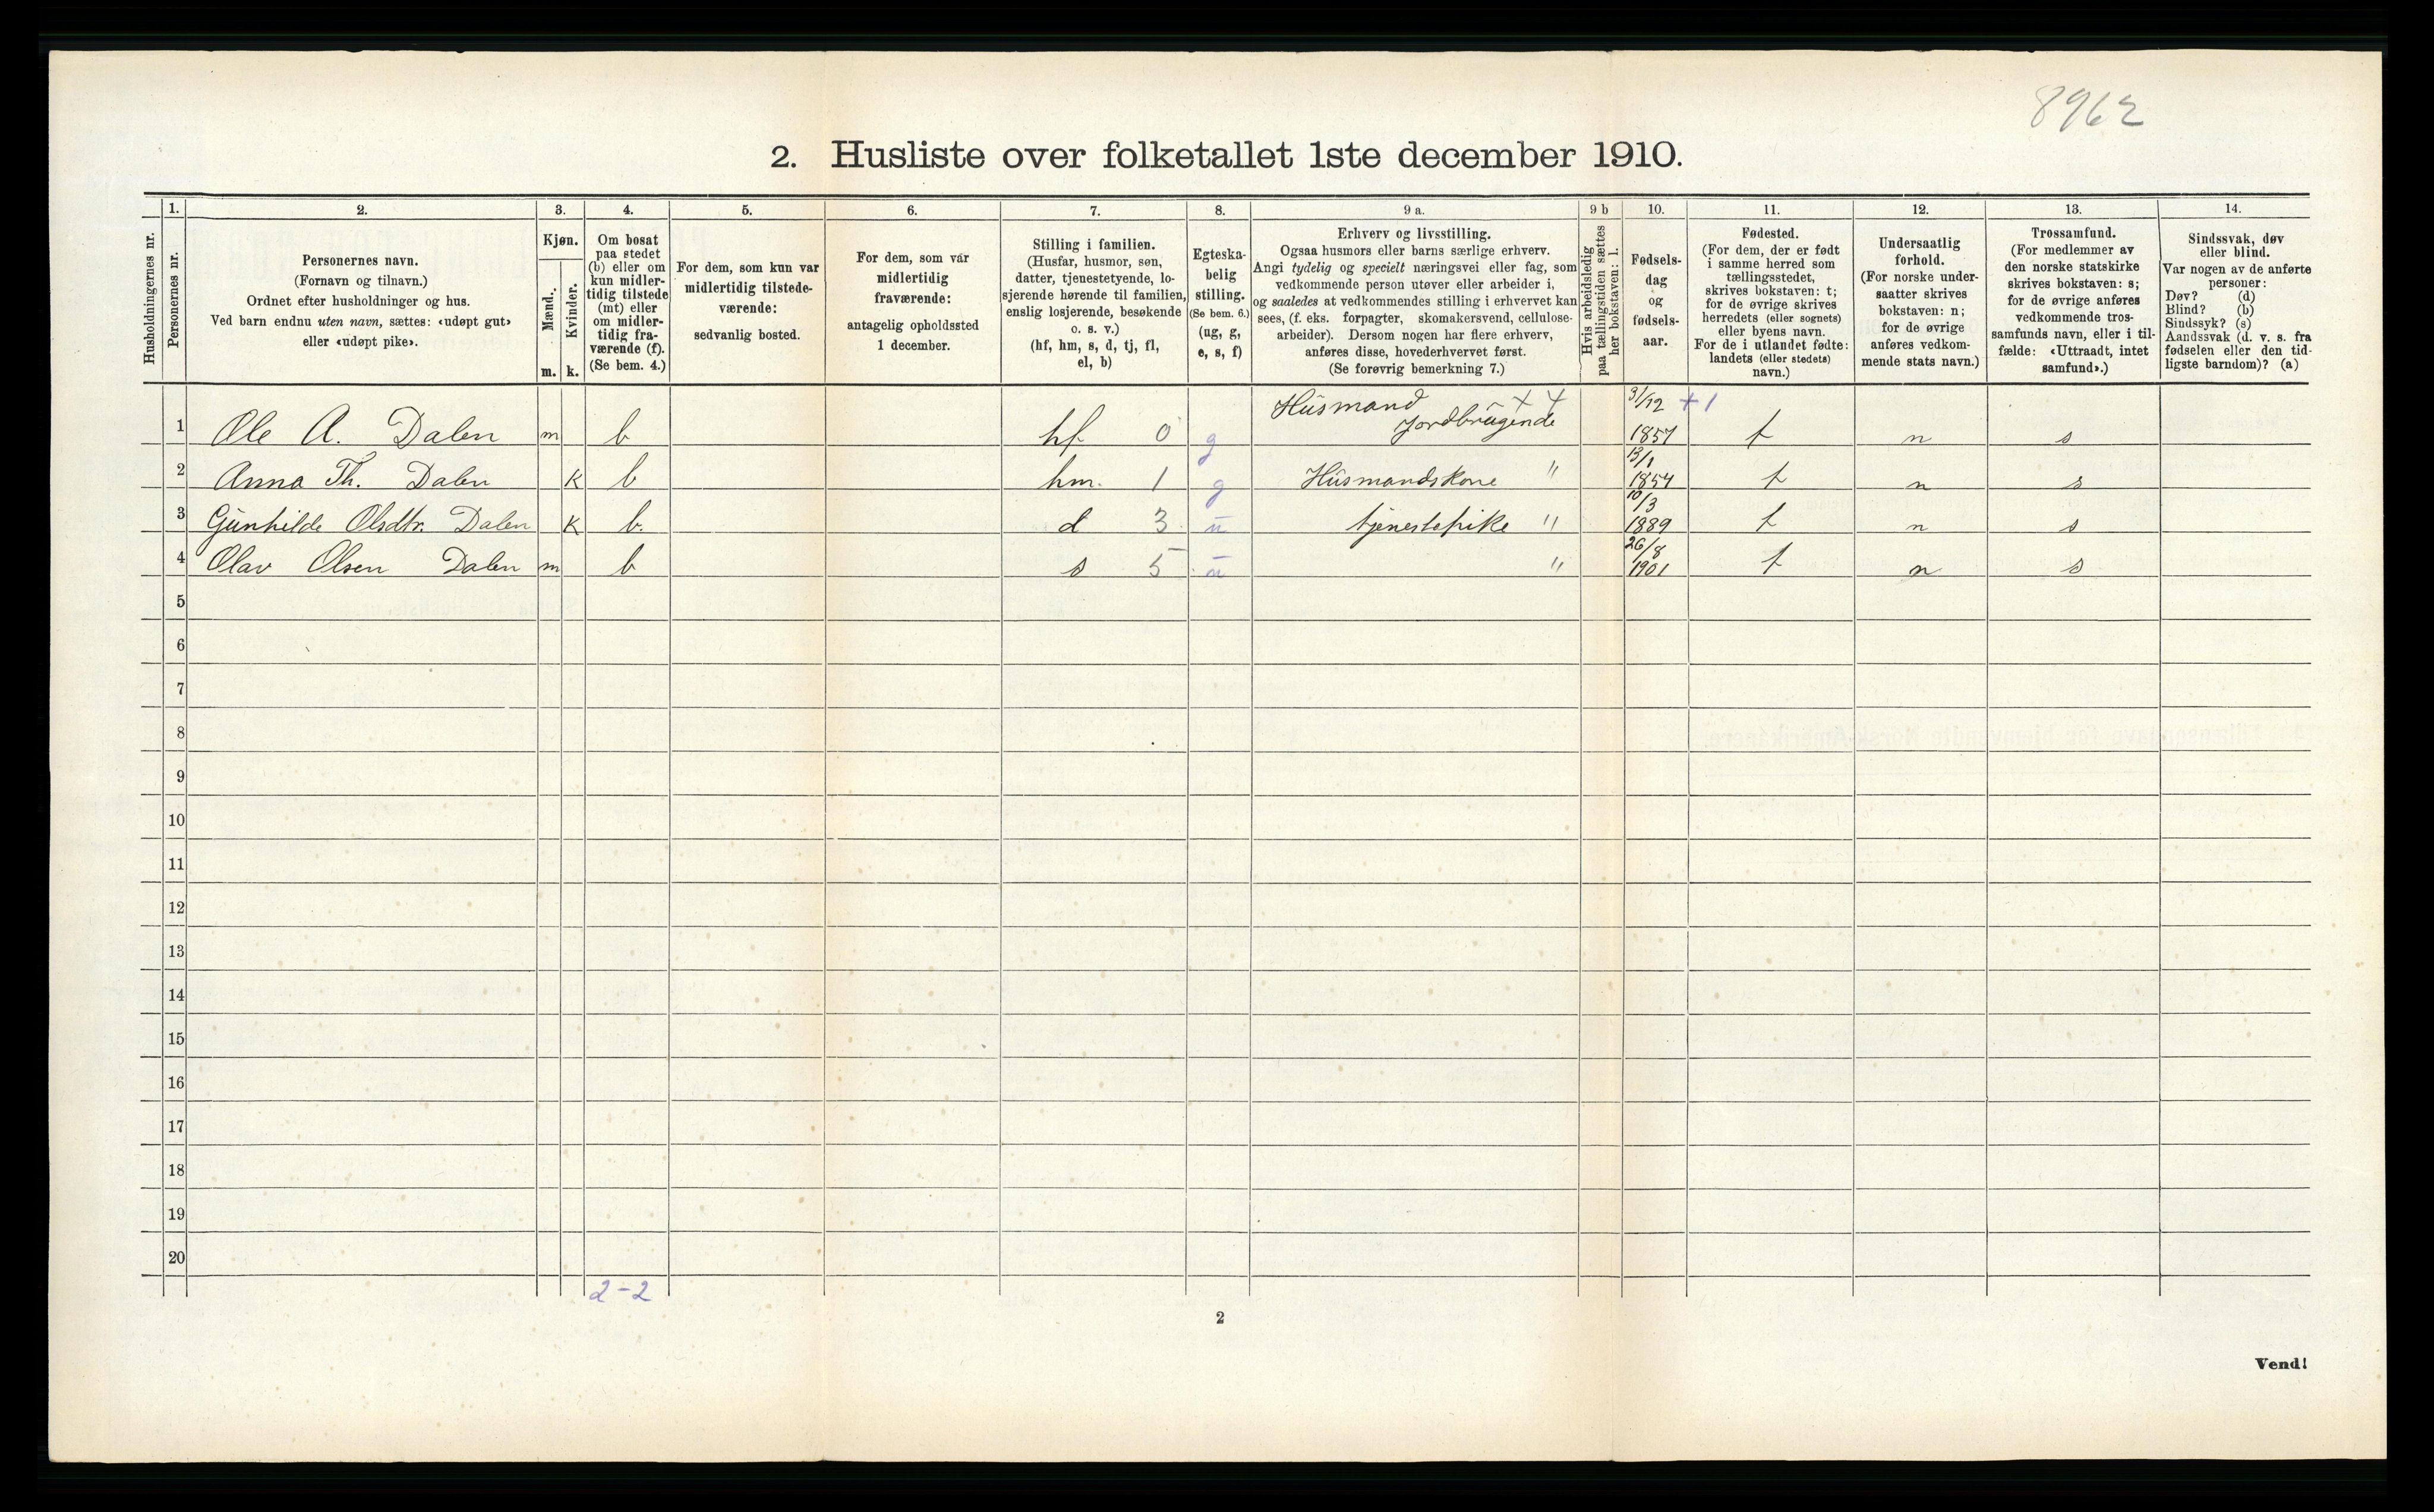 8962
2. Husliste over folketallet 1ste december 1910.
Husholdningernes nr.
1.
Personernes nr.
2.
Personernes navn.
(Fornavn og tilnavn.)
Ordnet efter husholdninger og hus.
Ved barn endnu uten navn, sættes: «udøpt gut»
eller «udøpt pike».
3.
Kjøn.
Mænd.
m.
Kvinder.
k.
4.
Om bosat
paa stedet
(b) eller om
kun midler-
tidig tilstede
(mt) eller
om midler-
tidig fra-
værende (f).
(Se bem. 4.)
5.
For dem, som kun var
midlertidig tilstede-
værende:
sedvanlig bosted.
6.
For dem, som var
midlertidig
fraværende:
antagelig opholdssted
1 december.
7.
Stilling i familien.
(Husfar, husmor, søn,
datter, tjenestetyende, lo-
sjerende hørende til familien,
enslig losjerende, besøkende
o. s. v.)
(hf, hm, s, d, tj, fl,
el, b)
8.
Egteska-
belig
stilling.
(Se bem. 6.)
(ug, g,
e, s, f)
9 a.
Erhverv og livsstilling.
Ogsaa husmors eller barns særlige erhverv.
Angi tydelig og specielt næringsvei eller fag, som
vedkommende person utøver eller arbeider i,
og saaledes at vedkommendes stilling i erhvervet kan
sees, (f. eks. forpagter, skomakersvend, cellulose-
arbeider). Dersom nogen har flere erhverv,
anføres disse, hovederhvervet først.
(Se forøvrig bemerkning 7.)
9 b
Hvis arbeidsledig
paa tællingstiden sættes
her bokstaven: l.
10.
Fødsels-
dag
og
fødsels-
aar.
11.
Fødested.
(For dem, der er født
i samme herred som
tællingsstedet,
skrives bokstaven: t;
for de øvrige skrives
herredets (eller sognets)
eller byens navn.
For de i utlandet fødte:
landets (eller stedets)
navn.)
12.
Undersaatlig
forhold.
(For norske under-
saatter skrives
bokstaven: n;
for de øvrige
anføres vedkom-
mende stats navn.)
13.
Trossamfund.
(For medlemmer av
den norske statskirke
skrives bokstaven: s;
for de øvrige anføres
vedkommende tros-
samfunds navn, eller i til-
fælde: «Uttraadt, intet
samfund».)
14.
Sindssvak, døv
eller blind.
Var nogen av de anførte
personer:
Døv? (d)
Blind? (b)
Sindssyk? (s)
Aandssvak (d. v. s. fra
fødselen eller den tid-
ligste barndom)? (a)
Husmand x 4 31/12 +1
1 Ole A. Dalen m b hf 0 g Jordbrugende 1857 t n s
13/1
2 Anna Th. Dalen K b hm. 1 g Husmandskone " 1854 t n s
10/3
3 Gunhilde Olsdtr. Dalen K b. d 3 u tjenestepike " 1889 t n s
26/8
4 Olav Olsen Dalen m b s 5 u " 1901 t n s
5
6
7
8
9
10
11
12
13
14
15
16
17
18
19
20
2-2
2
Vend!